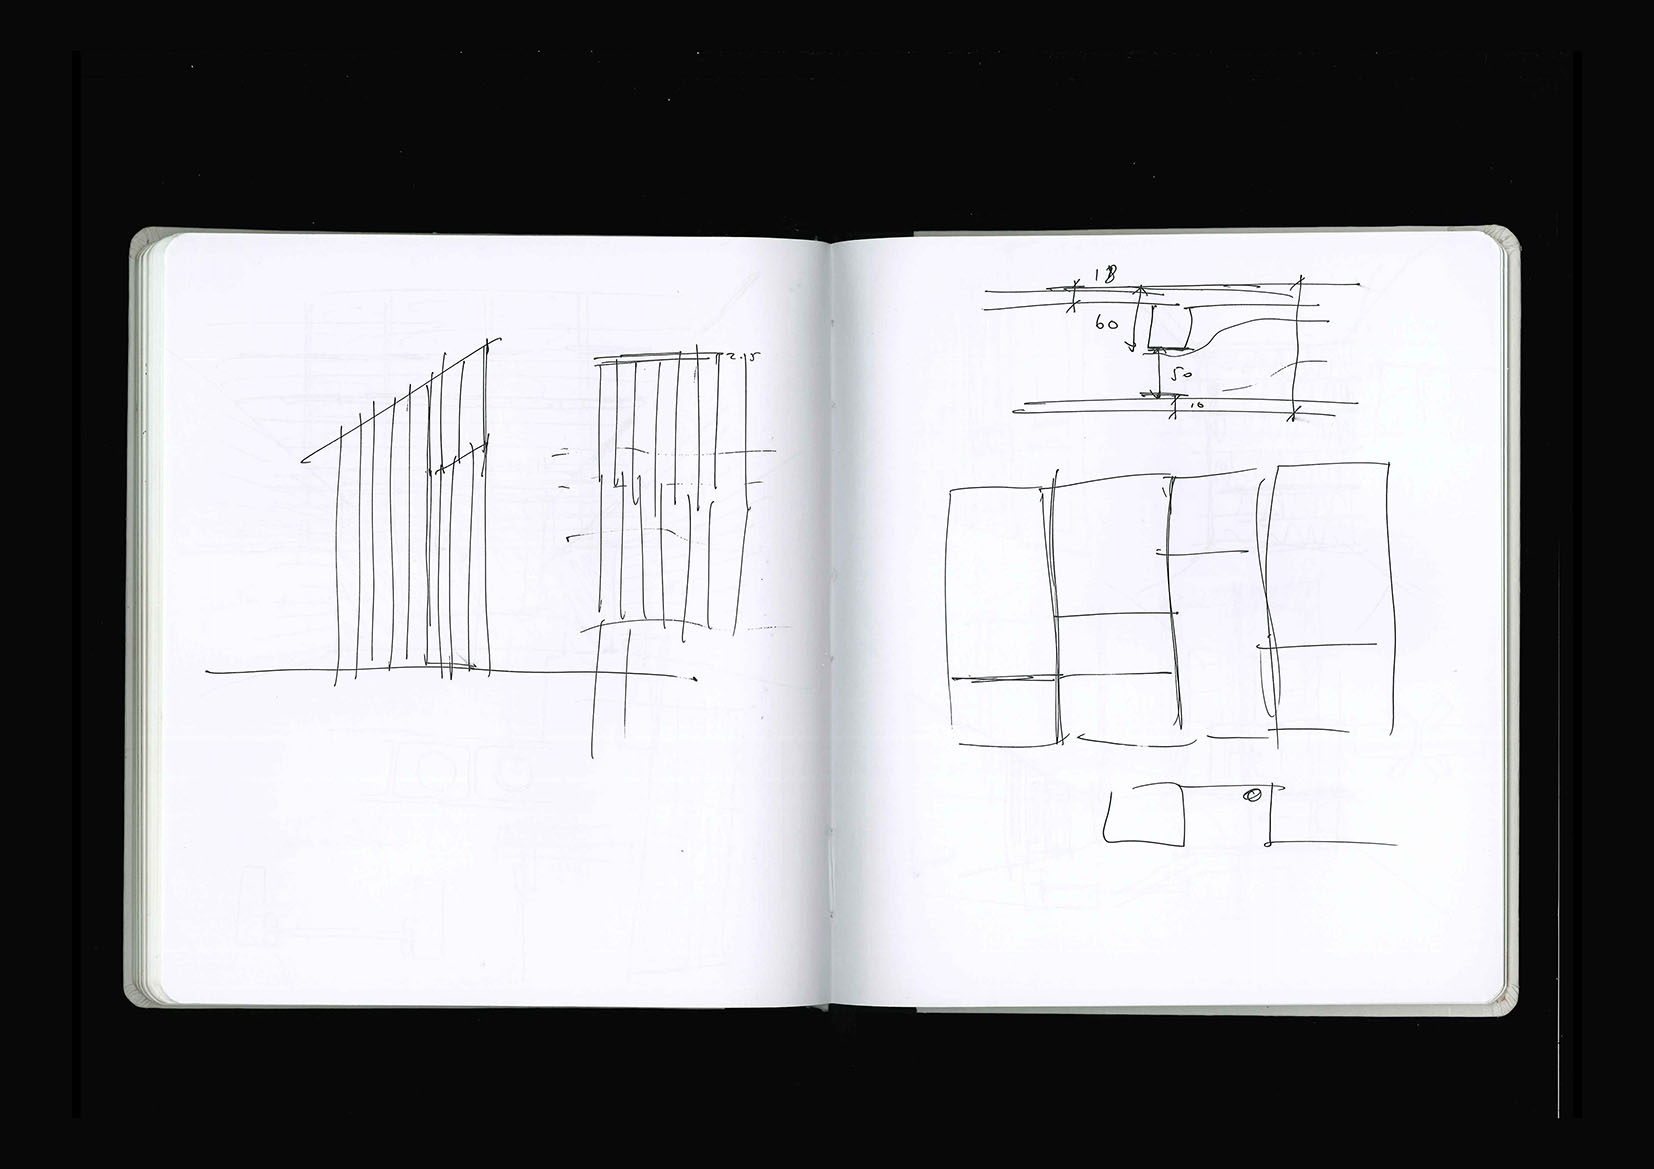 2.15
18
60
50
10